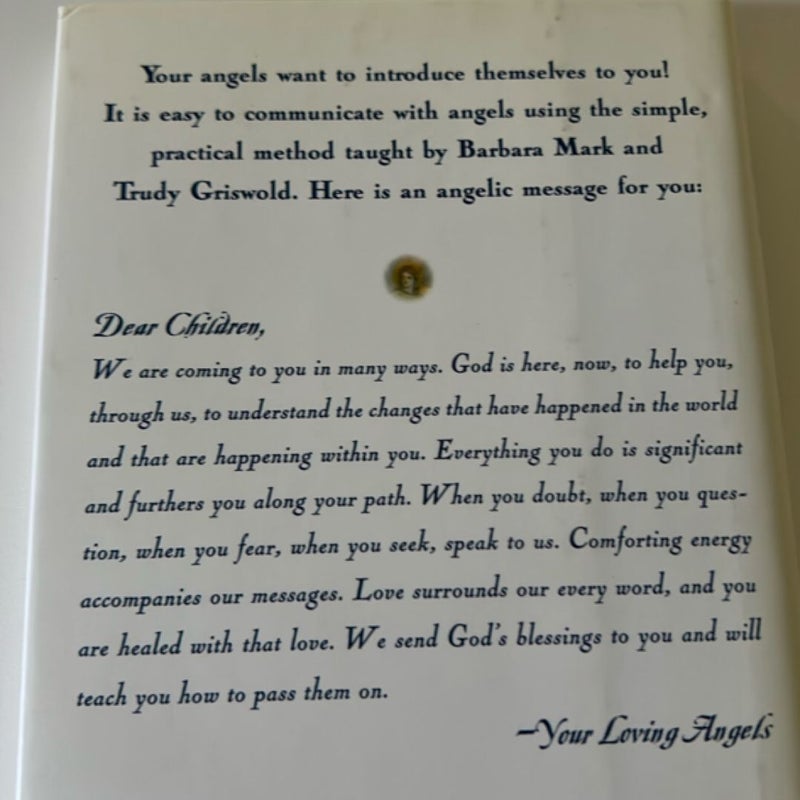 Your angels want to introduce themselves to you!
It is easy to communicate with angels using the simple,
practical method taught by Barbara Mark and
Trudy Griswold. Here is an angelic message for you:
Dear Children,
We are coming to you in many ways. God is here, now, to help you,
through us, to understand the changes that have happened in the world
and that are happening within you. Everything you do is significant
and furthers you along your path. When you doubt, when you ques-
tion, when you fear, when you seek, speak to us. Comforting energy
accompanies our messages. Love surrounds our every word, and you
are healed with that love. We send God's blessings to you and will
teach you how to pass them on.
—Your Loving Angels